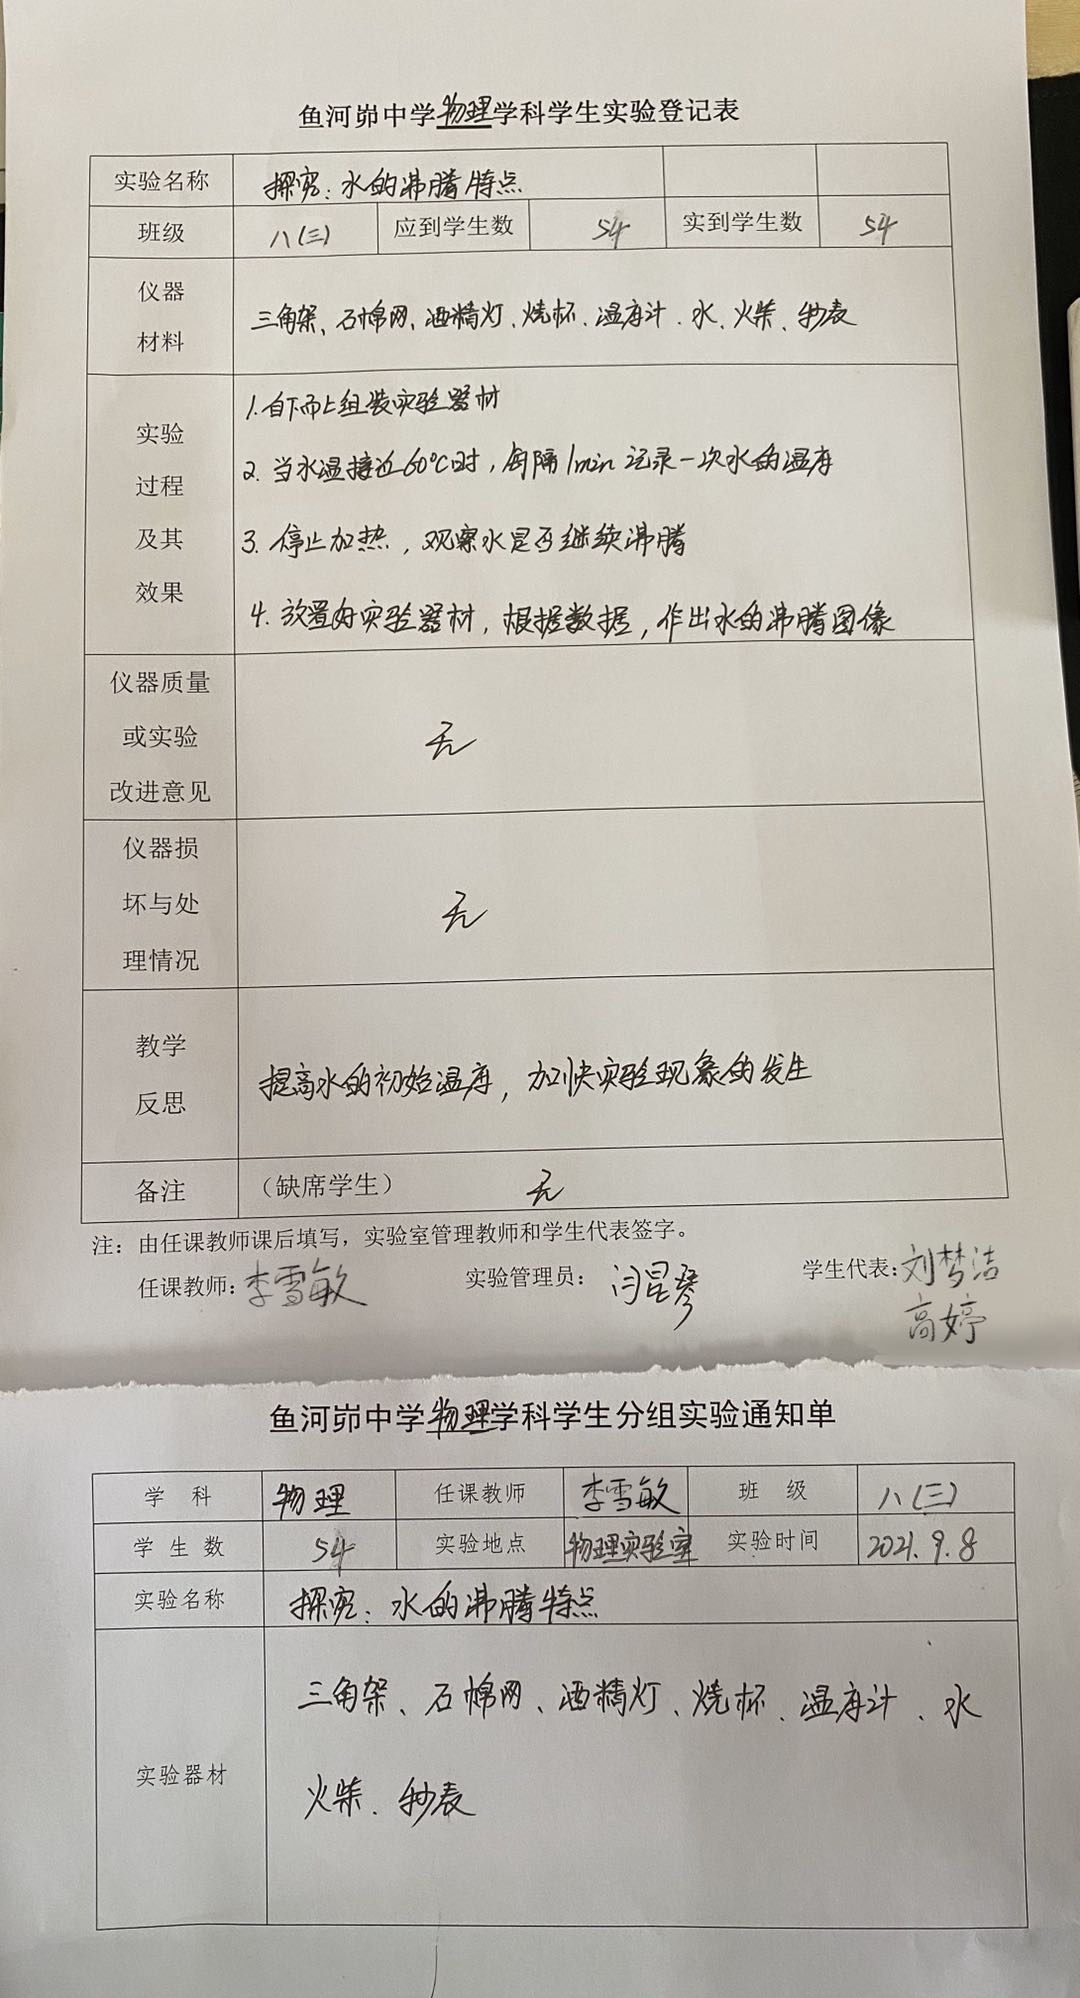 鱼河峁中学物理学科学生实验登记表
实验名称 探究：水的沸腾特点
班级 八(三) 应到学生数 54 实到学生数 54
仪器
材料
三角架、石棉网、酒精灯、烧杯、温度计、水、火柴、秒表
实验
过程
及其
效果
1. 自下而上组装实验器材
2. 当水温接近60℃时，每隔1min记录一次水的温度
3. 停止加热，观察水是否继续沸腾
4. 放置好实验器材，根据数据，作出水的沸腾图像
仪器质量
或实验
改进意见
无
仪器损
坏与处
理情况
无
教学
反思
提高水的初始温度，加快实验现象的发生
备注 （缺席学生） 无
注：由任课教师课后填写，实验室管理教师和学生代表签字。
任课教师：李雪敏 实验管理员：闫昆琴 学生代表：刘梦洁
高婷
鱼河峁中学物理学科学生分组实验通知单
学 科 物理 任课教师 李雪敏 班 级 八(三)
学 生 数 54 实验地点 物理实验室 实验时间 2021.9.8
实验名称 探究：水的沸腾特点
实验器材
三角架、石棉网、酒精灯、烧杯、温度计、水
火柴、秒表